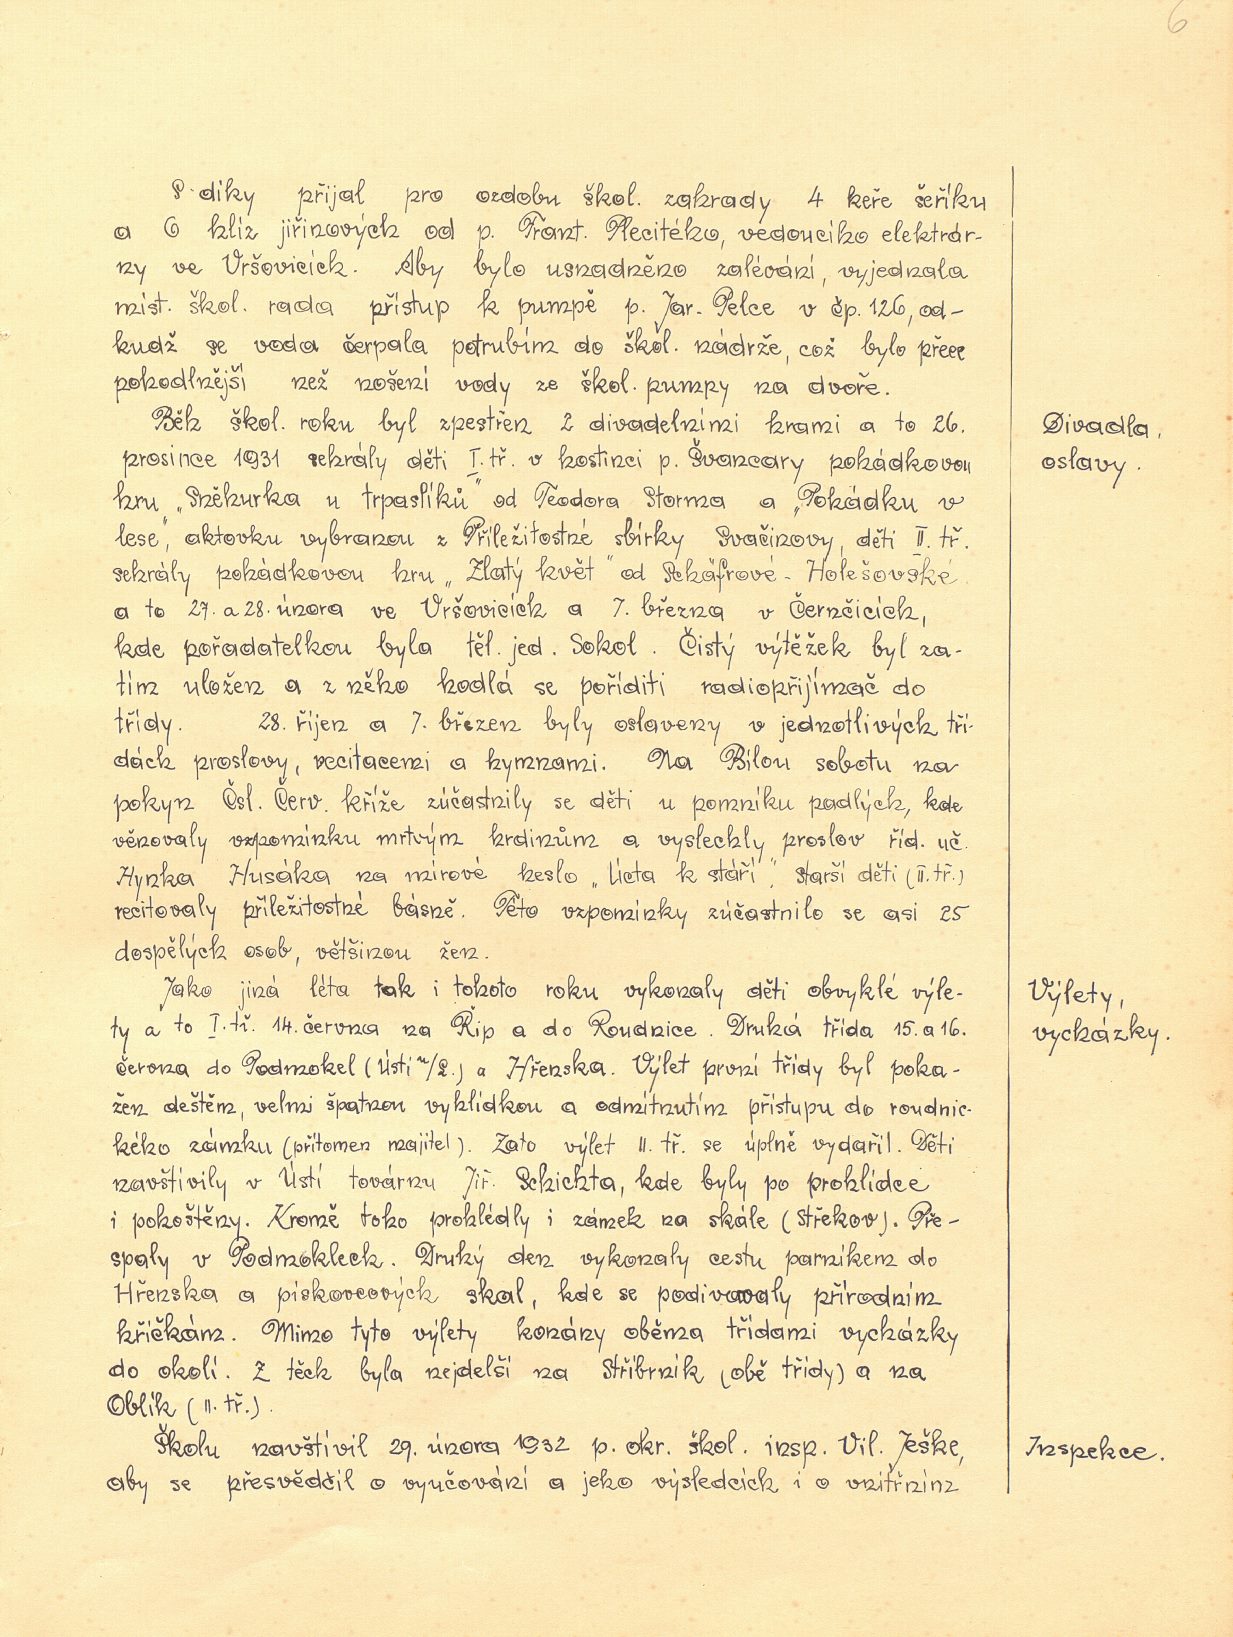 6
S díky přijal pro ozdobu škol. zahrady 4 keře šeříku
a 6 hlíz jiřinových od p. Frant. Plecitého, vedoucího elektrár-
ny ve Vršovicích. Aby bylo usnadněno zalévání, vyjednala
míst. škol. rada přístup k pumpě p. Jar. Pelce v čp. 126, od-
kudž se voda čerpala potrubím do škol. nádrže, což bylo přece
pohodlnější než nošení vody ze škol. pumpy na dvoře.
Běh škol. roku byl zpestřen 2 divadelními hrami a to 26.
Divadla,
prosince 1931 sehrály děti I. tř. v hostinci p. Švancary pohádkovou
oslavy.
hru „Sněhurka u trpaslíků" od Teodora Storma a „Pohádku v
lese", aktovku vybranou z Příležitostné sbírky Svačinovy, děti II. tř.
sehrály pohádkovou hru „Zlatý květ" od Schäfrové - Holešovské
a to 27. a 28. února ve Vršovicích a 7. března v Černčicích,
kde pořadatelkou byla těl. jed. Sokol. Čistý výtěžek byl za-
tím uložen a z něho hodlá se poříditi radiopřijímač do
třídy. 28. říjen a 7. březen byly oslaveny v jednotlivých tří-
dách proslovy, recitacemi a hymnami. Na Bílou sobotu na
pokyn Čsl. Červ. kříže zúčastnily se děti u pomníku padlých, kde
věnovaly vzpomínku mrtvým hrdinům a vyslechly proslov říd. uč.
Hynka Husáka na mírové heslo „Úcta k stáří". Starší děti (II. tř.)
recitovaly příležitostné básně. Této vzpomínky zúčastnilo se asi 25
dospělých osob, většinou žen.
Jako jiná léta tak i tohoto roku vykonaly děti obvyklé výle-
Výlety,
ty a to I. tř. 14. června na Říp a do Roudnice. Druhá třída 15. a 16.
vycházky.
června do Podmokel (Ústí n/L.) a Hřenska. Výlet první třídy byl poka-
žen deštěm, velmi špatnou vyhlídkou a odmítnutím přístupu do roudnic-
kého zámku (přítomen majitel). Zato výlet II. tř. se úplně vydařil. Děti
navštívily v Ústí továrnu Jiř. Schichta, kde byly po prohlídce
i pohoštěny. Kromě toho prohlédly i zámek na skále (Střekov). Pře-
spaly v Podmoklech. Druhý den vykonaly cestu parníkem do
Hřenska a pískovcových skal, kde se podivovaly přírodním
hříčkám. Mimo tyto výlety konány oběma třídami vycházky
do okolí. Z těch byla nejdelší na Stříbrník (obě třídy) a na
Oblík (II. tř.).
Školu navštívil 29. února 1932 p. okr. škol. insp. Vil. Ješke,
Inspekce.
aby se přesvědčil o vyučování a jeho výsledcích i o vnitřním